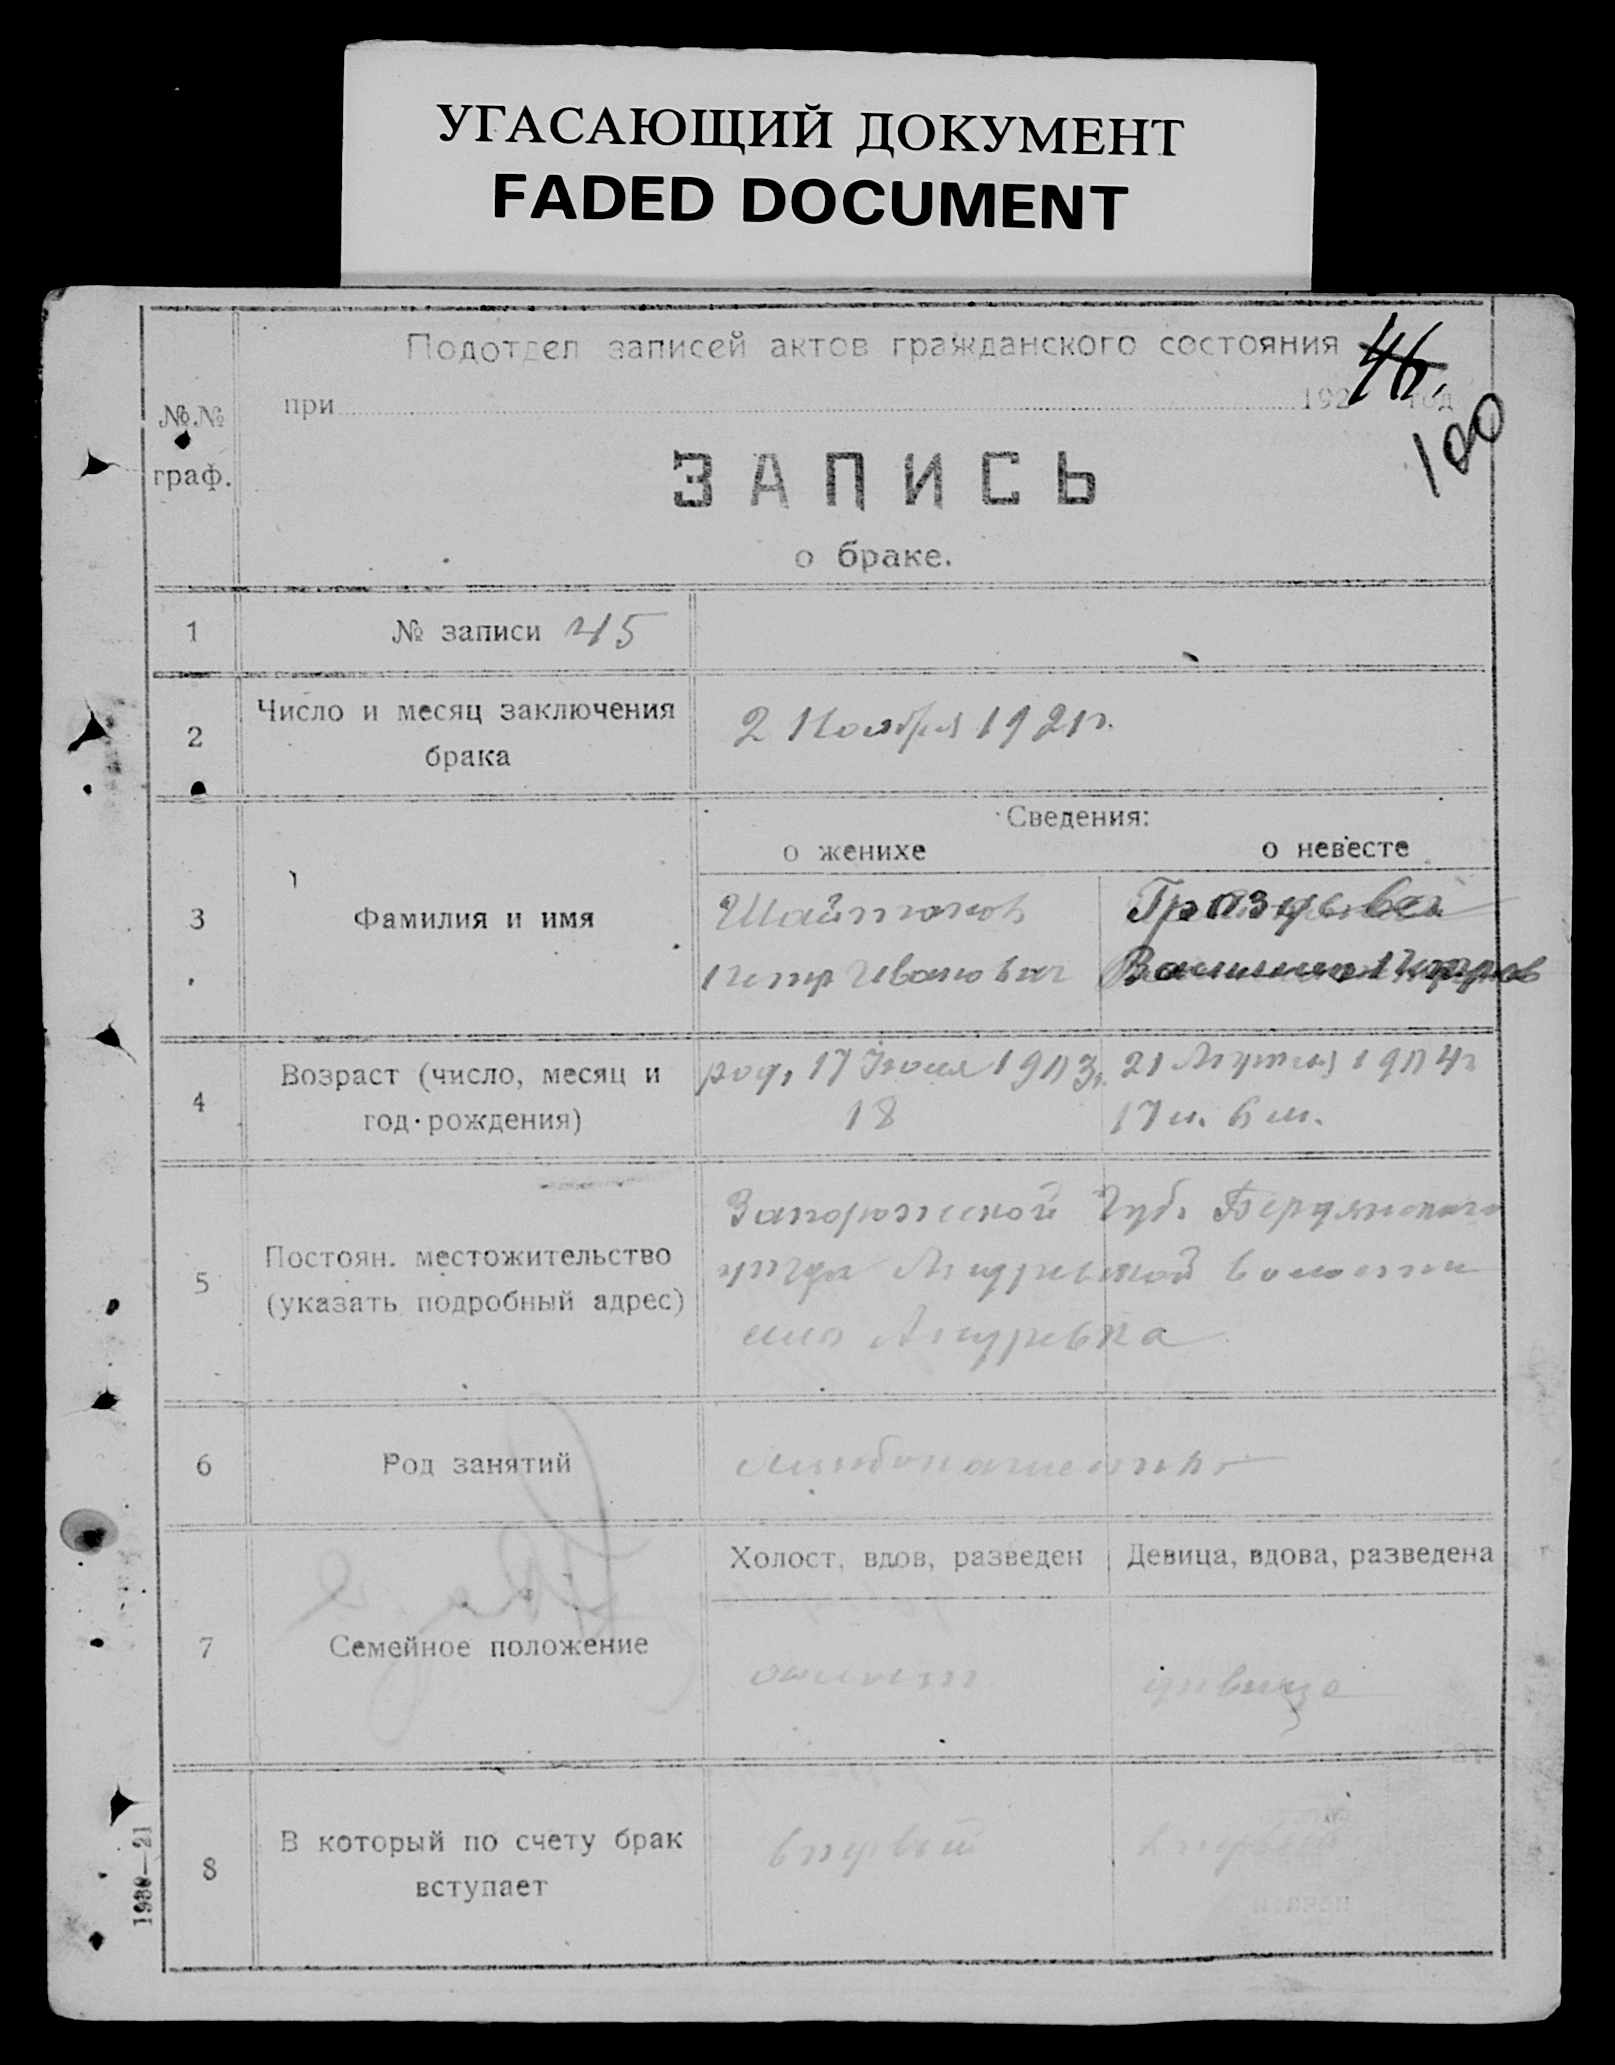 УГАСАЮЩИЙ ДОКУМЕНТ
FADED DOCUMENT
Подотдел записей актов гражданского состояния
46.
при 192 год
100
№№ граф.
ЗАПИСЬ
о браке.
1 № записи 45
2 Число и месяц заключения брака
2 Ноября 1921г.
Сведения:
о женихе о невесте
3 Фамилия и имя
Шайтанов
Петр Иванович
4 Возраст (число, месяц и год рождения)
род. 17 Июля 1903г. 21 1904г
18 17 л. 6 м.
5 Постоян. местожительство (указать подробный адрес)
Запорожской Губ. Бердянского
уезда Андреевской волости
село Андреевка
6 Род занятий
хлебопашество
7 Семейное положение
Холост, вдов, разведен Девица, вдова, разведена
холост девица
8 В который по счету брак вступает
первый первый
1980—21